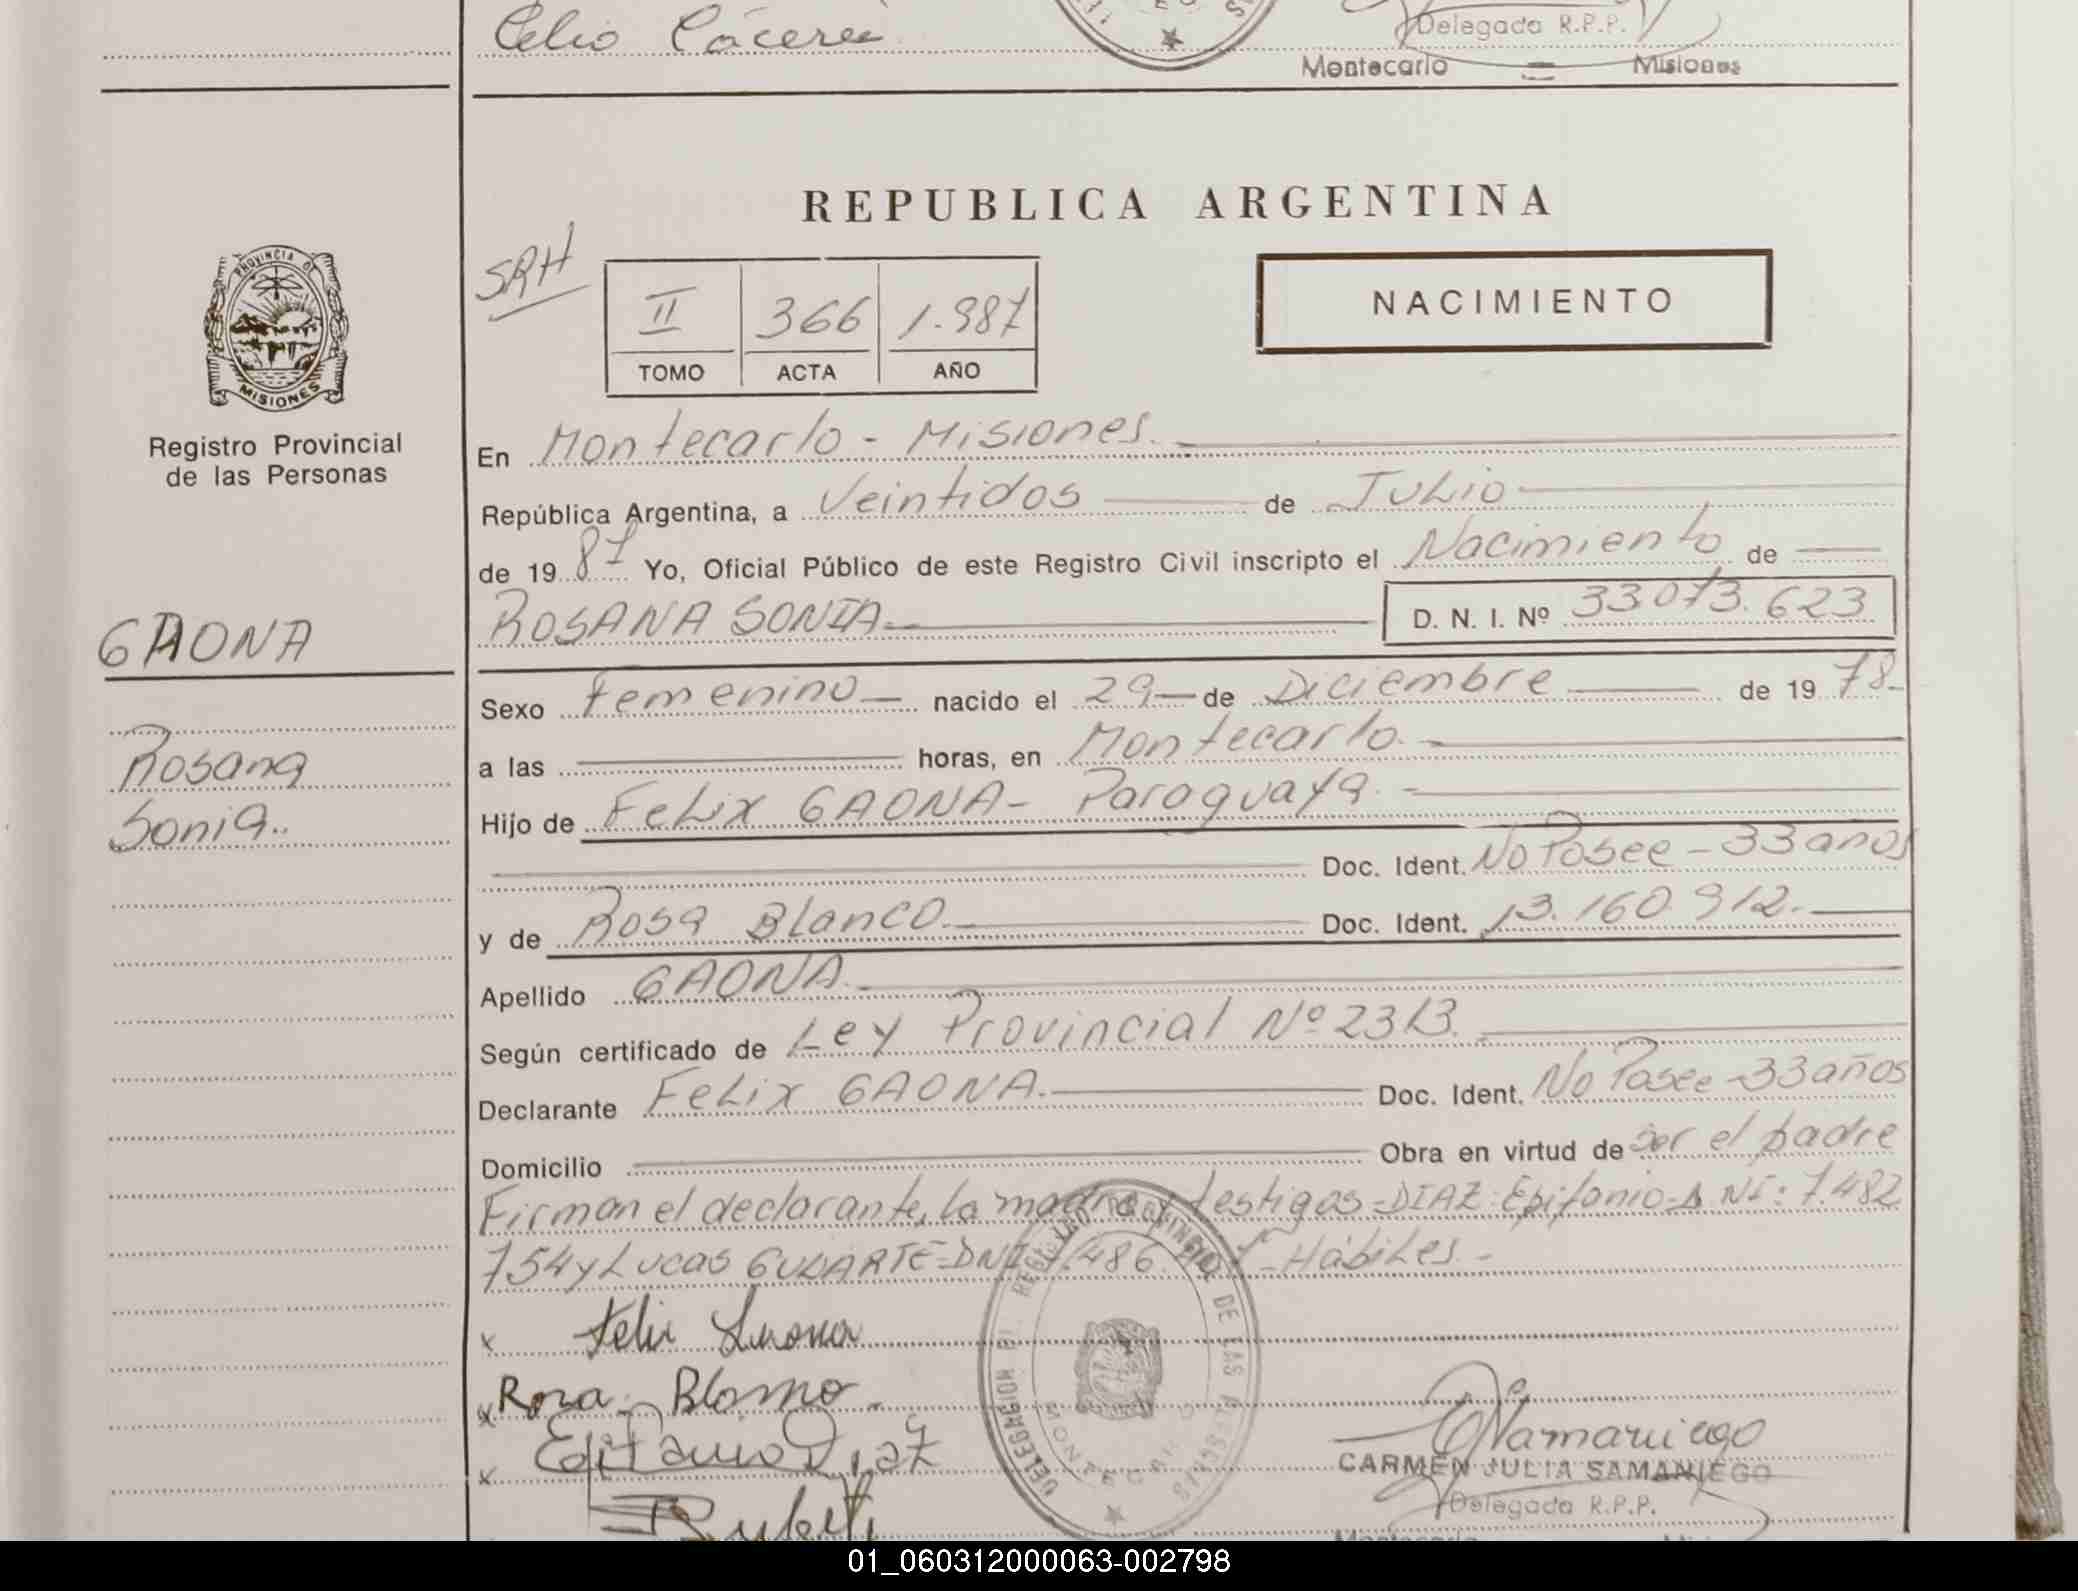 Celio Cáceres
Delegada R.P.P.
Montecarlo Misiones
REPUBLICA ARGENTINA
PROVINCIA DE MISIONES
Registro Provincial
de las Personas
SRH
II 366 1.987
TOMO ACTA AÑO
NACIMIENTO
En Montecarlo - Misiones.
República Argentina, a Veintidos de Julio
de 19 87 Yo, Oficial Público de este Registro Civil inscripto el Nacimiento de
ROSANA SONIA D. N. I. Nº 33.073.623
GAONA
Rosana
Sonia..
Sexo Femenino nacido el 29 de Diciembre de 19 78
a las horas, en Montecarlo.
Hijo de Felix GAONA - Paraguaya.
Doc. Ident. No Posee - 33 anos
y de Rosa Blanco Doc. Ident. 13.160.912.
Apellido GAONA.
Según certificado de Ley Provincial Nº 2313.
Declarante Felix GAONA. Doc. Ident. No Posee - 33 años
Domicilio Obra en virtud de ser el padre
Firman el declarante, la madre y testigos - DIAZ - Epifanio - DNI: 7.482
754 y Lucas GULARTE - DNI 7.486. - Hábiles. -
x Felix Gaona
x Rosa Blanco
x Epifanio Diaz
DELEGACION DEL REGISTRO PROVINCIAL DE LAS PERSONAS
MONTECARLO
CARMEN JULIA SAMANIEGO
Delegada R.P.P.
Montecarlo
01_060312000063-002798